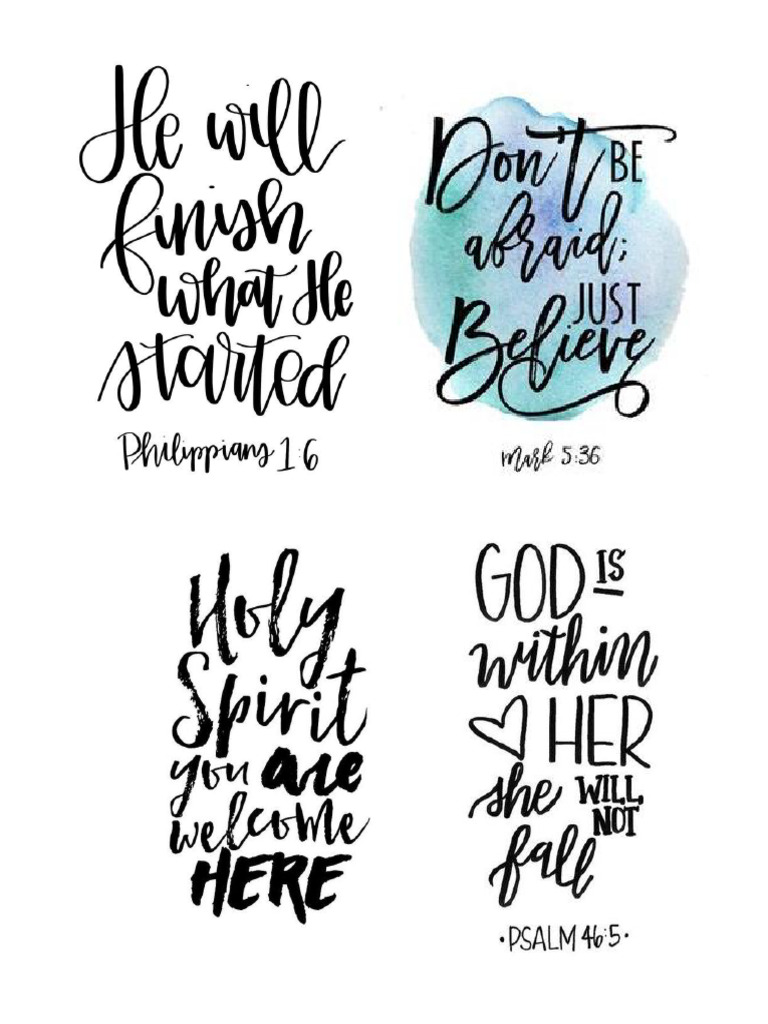 He will
finish
what He
started
Philippians 1:6
Don't BE
afraid;
JUST
Believe
Mark 5:36
Holy
Spirit
you are
welcome
HERE
GOD IS
within
HER
she WILL
NOT
fall
•PSALM 46:5•